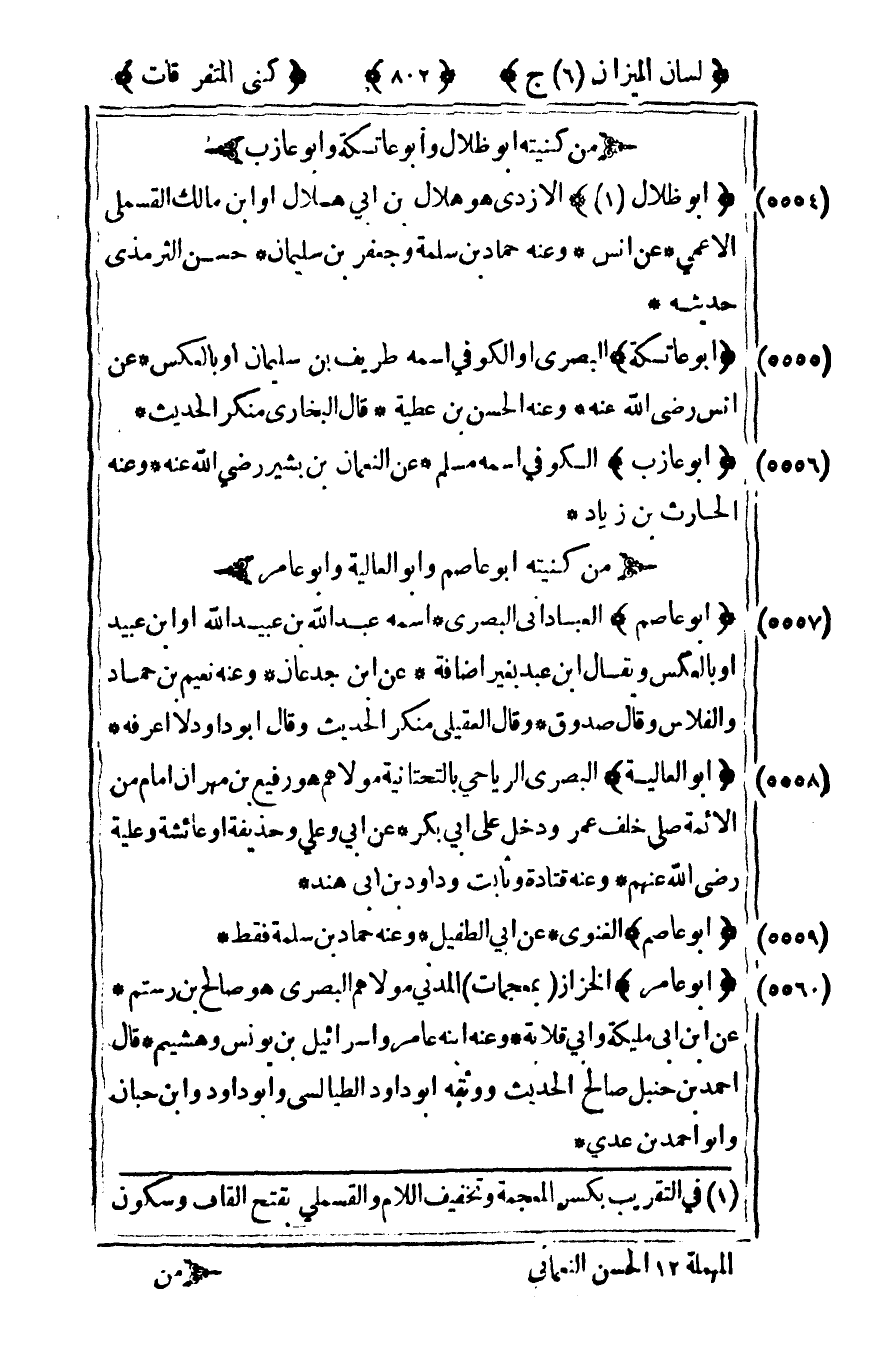 ﴿ لسان الميزان (٦) ج ﴾ ﴿ ٨٠٢ ﴾ ﴿ كنى المتفر قات ﴾
من كنيته ابو ظلال وأبو عاتكة وابو عازب
(٥٥٥٤) ﴿ ابو ظلال (١) ﴾ الازدى هو هلال بن ابي هلال او ابن مالك القسملى
الاعمي * عن انس * وعنه حماد بن سلمة وجعفر بن سليمان * حسن الترمذى
حديثه *
(٥٥٥٥) ﴿ ابو عاتكة ﴾ البصرى او الكوفي اسمه طريف بن سليمان او بالعكس * عن
انس رضى الله عنه * وعنه الحسن بن عطية * قال البخارى منكر الحديث *
(٥٥٥٦) ﴿ ابو عازب ﴾ الكوفي اسمه مسلم * عن النعمان بن بشير رضي الله عنه * وعنه
الحارث بن زياد *
من كنيته ابو عاصم وابو العالية وابو عامر
(٥٥٥٧) ﴿ ابو عاصم ﴾ العبادانى البصرى * اسمه عبد الله بن عبيد الله او ابن عبيد
او بالعكس ويقال ابن عبد بغير اضافة * عن ابن جدعان * وعنه نعيم بن حماد
والفلاس وقال صدوق * وقال العقيلى منكر الحديث وقال ابو داود لا اعرفه *
(٥٥٥٨) ﴿ ابو العالية ﴾ البصرى الرياحي بالتحتانية مولاهم هو رفيع بن مهران امام من
الائمة صلى خلف عمر ودخل على ابي بكر * عن ابي وعلي وحذيفة او عائشة وعلية
رضى الله عنهم * وعنه قتادة وثابت وداود بن ابى هند *
(٥٥٥٩) ﴿ ابو عاصم ﴾ الغنوى * عن ابي الطفيل * وعنه حماد بن سلمة فقط *
(٥٥٦٠) ﴿ ابو عامر ﴾ الخزاز ( بمعجمات) المدني مولاهم البصرى هو صالح بن رستم *
عن ابن ابى مليكة وابي قلابة * وعنه ابنه عامر واسرائيل بن يونس وهشيم * قال
احمد بن حنبل صالح الحديث ووثقه ابو داود الطيالسى وابو داود وابن حبان
وابو احمد بن عدي *
(١) في التقريب بكسر المعجمة وتخفيف اللام والقسملي بفتح القاف وسكون
المهملة ١٢ الحسن النعماني
من